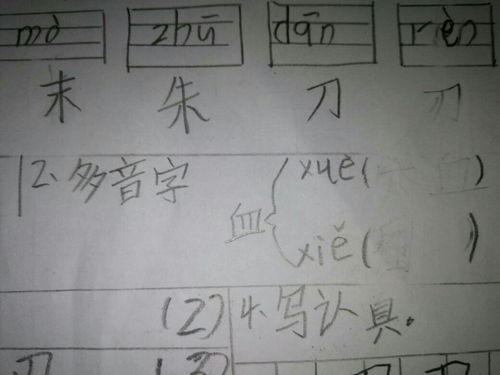 mò zhū dāo rèn
末 朱 刀 刃
2、多音字
血 xuè( )
xiě( )
(2) 4、写认具.
刃 (3)